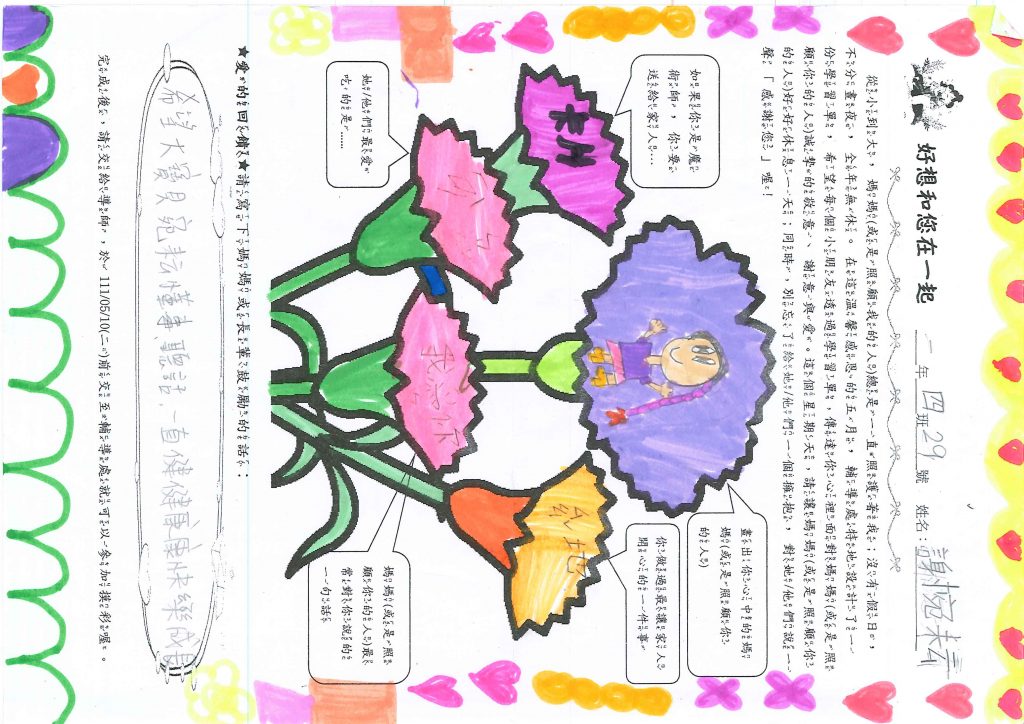 好想和您在一起 一年四班29號 姓名：謝宛耘
從小到大，媽媽(或是照顧我的人)總是一直照護著我；沒有假日，
不分晝夜，全年無休。在這溫馨感恩的五月，輔導處特地設計了一
份學習單，希望每個小朋友透過學習單，傳達你心裡面對媽媽(或是照
顧你的人)誠摯的敬意、謝意與愛。這個星期天，請讓媽媽(或是照顧你
的人)好好休息一天；同時，別忘了給她/他們一個擁抱，對她/他們說一
聲「感謝您」喔！
如果你是魔
術師，你要
送給家人…
卡片
畫出你心中的媽
媽(或是照顧你
的人)
你做過最讓家人
開心的一件事
地
她/他們最愛
吃的是……
我愛你
媽媽(或是照
顧你的人)最
常對你說的
一句話
★愛的回饋★請寫下媽媽或長輩鼓勵的話：
希望大寶貝宛耘懂事聽話，一直健健康康快樂成長
完成後，請交給導師，於 111/05/10(二)前交至輔導處就可以參加摸彩喔。